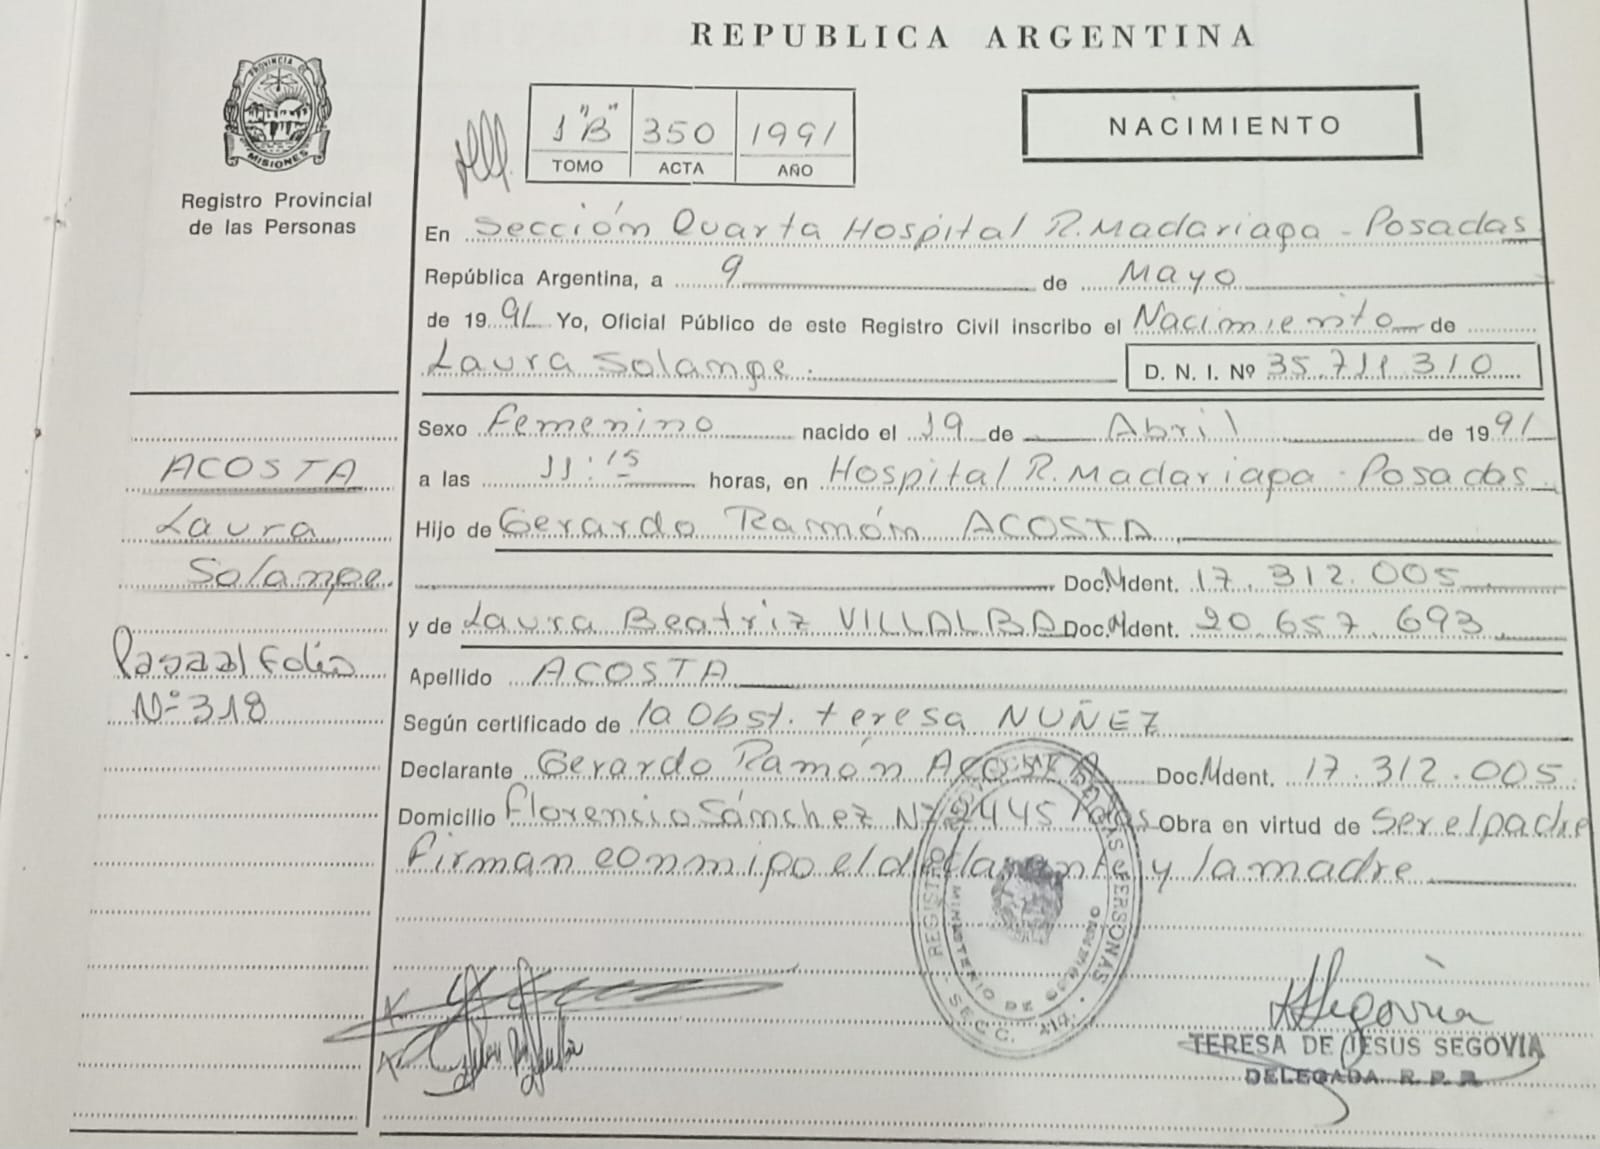 REPUBLICA ARGENTINA
PROVINCIA DE
MISIONES
Registro Provincial
de las Personas
1 "B" 350 1991
TOMO ACTA AÑO
NACIMIENTO
En Sección Quarta Hospital R. Madariaga - Posadas
República Argentina, a 9 de Mayo
de 1991 Yo, Oficial Público de este Registro Civil inscribo el Nacimiento de
Laura Solange. D. N. I. Nº 35.711.310
Sexo Femenino nacido el 19 de Abril de 1991
a las 11:15 horas, en Hospital R. Madariaga - Posadas
Hijo de Gerardo Ramón ACOSTA
Doc. Ident. 17.312.005
y de Laura Beatriz VILLALBA Doc. Ident. 20.657.693
Apellido ACOSTA
Según certificado de la Obst. teresa NUÑEZ
Declarante Gerardo Ramón ACOSTA Doc. Ident. 17.312.005
Domicilio Florencio Sánchez Nº 2445 Pdas Obra en virtud de Ser el padre
Firman conmigo el declarante y la madre
ACOSTA
Laura
Solange.
Pasa al Folio
Nº 318
REGISTRO PROVINCIAL DE LAS PERSONAS
MINISTERIO DE GOBIERNO
SECC. 4ta.
Segovia
TERESA DE JESUS SEGOVIA
DELEGADA R. P. P.